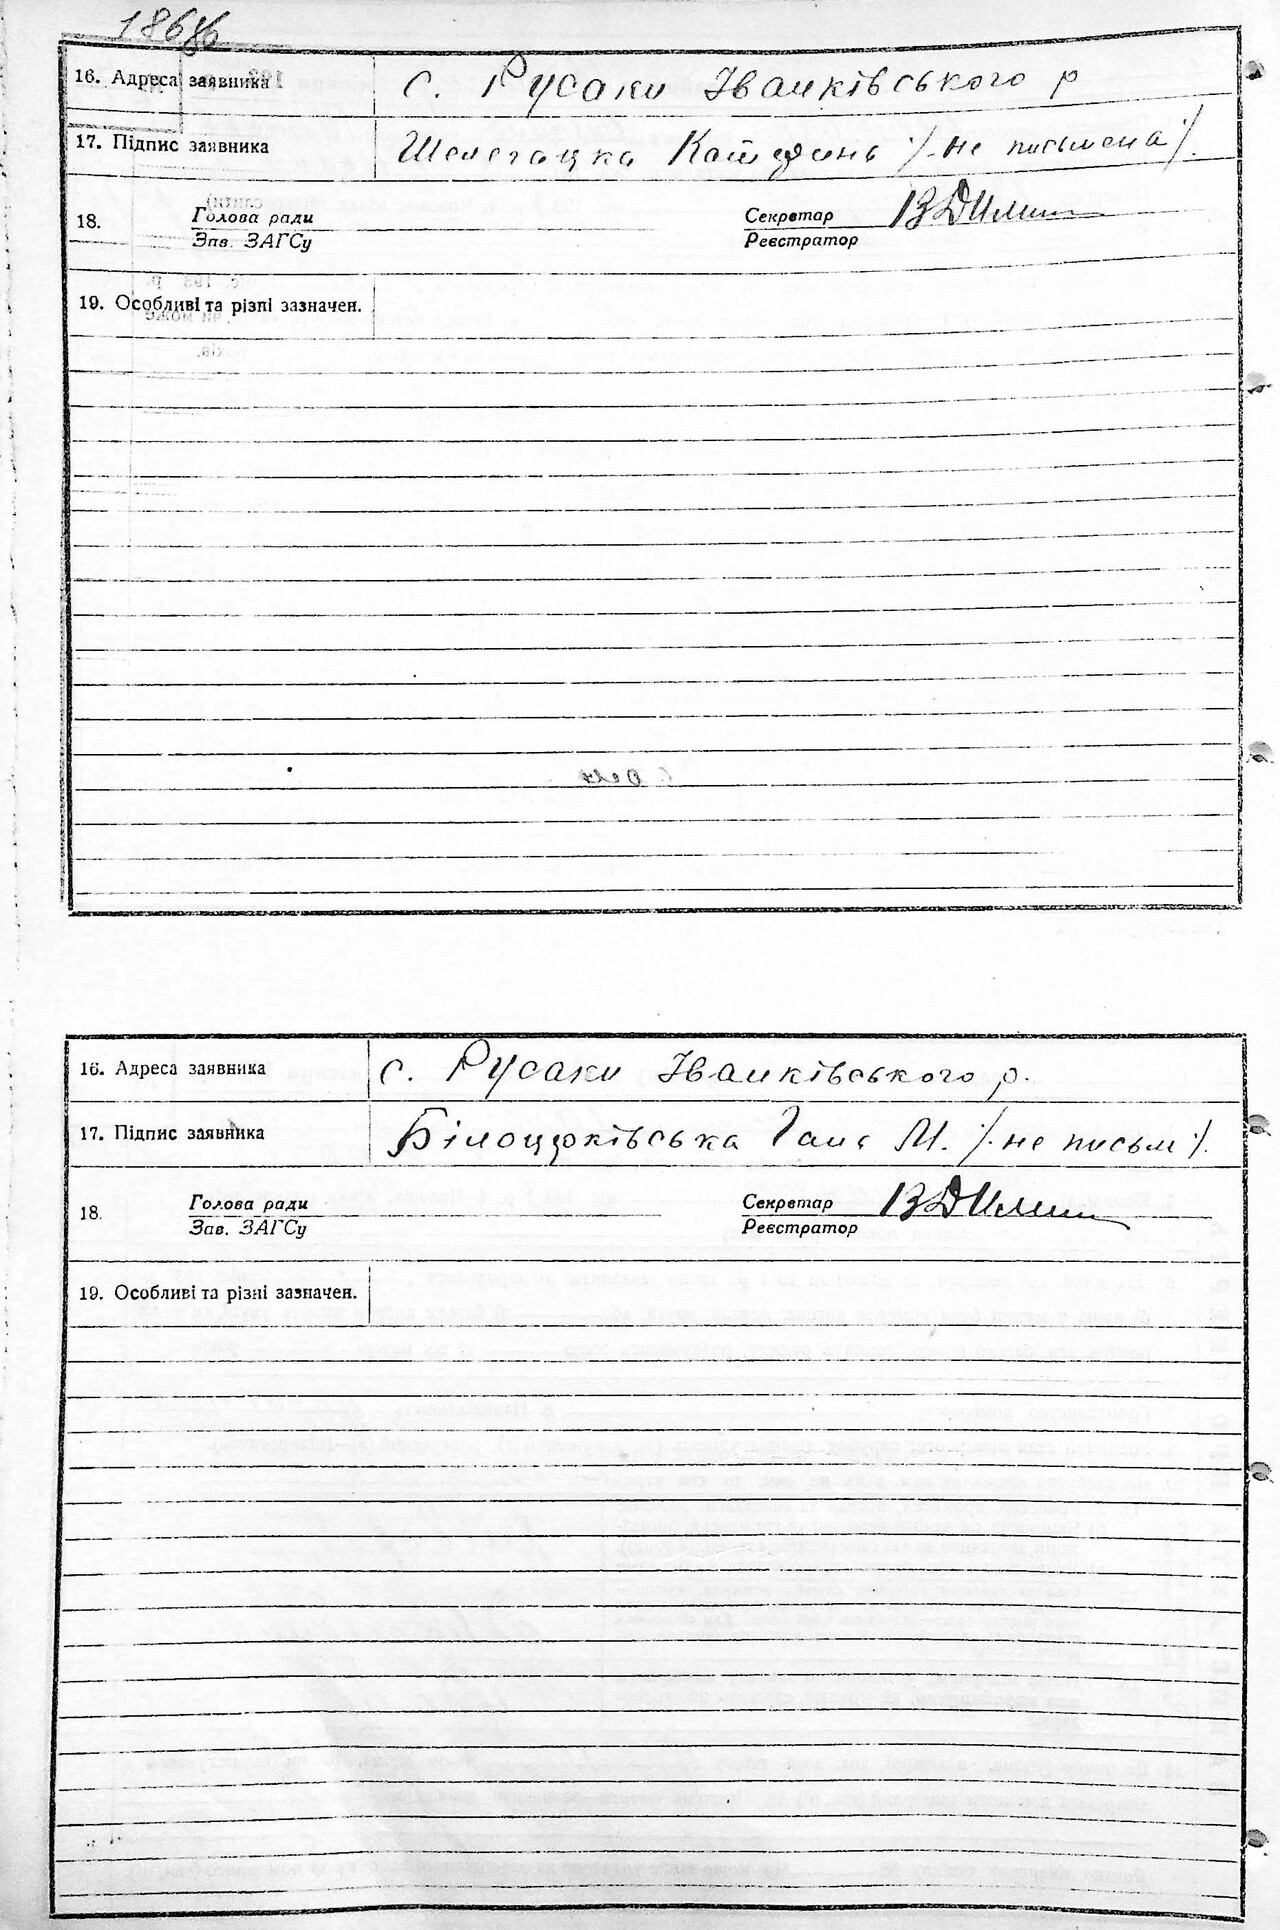 186
16. Адреса заявника
с. Русаки Іванківського р
17. Підпис заявника
Шелегацка /. не письмена /.
18. Голова ради
Зав. ЗАГСу
Секретар
Реєстратор
19. Особливі та різні зазначен.
16. Адреса заявника
с. Русаки Іванківського р.
17. Підпис заявника
Білоцерківська Гана М. /. не письм /.
18. Голова ради
Зав. ЗАГСу
Секретар
Реєстратор
19. Особливі та різні зазначен.